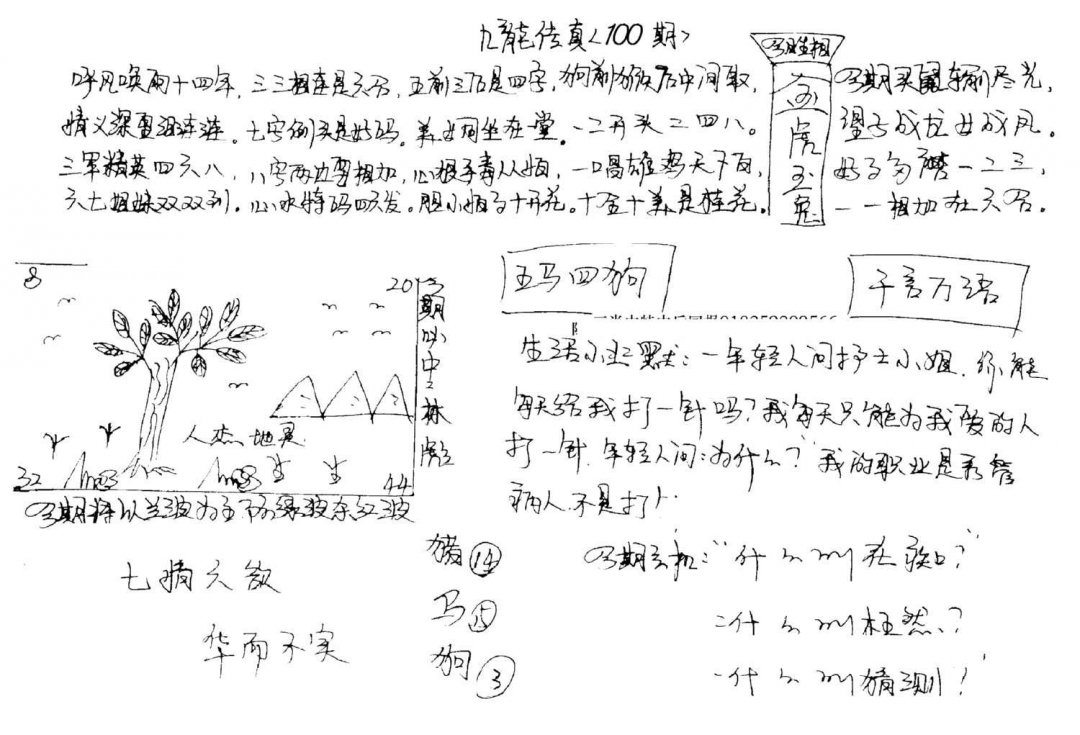 九龍传真<100期>
呼风唤雨十四年，三三相连是六合，五前三后是四字，狗前猴后中间取，
情义深重泪连连。七字倒头是好码。美女同坐在一堂。一二开头二四八。
三军精英四六八，八字两边要相加，心狠手毒从娘，一唱雄鸡天下白，
六七姐妹双双到。心水特码四六发。胆小娘子十开花。十全十美是桂花。
今期生相
金
虎
玉
兔
今期买鼠输尽光，
望子成龙女成凤。
好事多磨一二三，
一一相加在六合。
8
20
32
44
人杰地灵
今期必中林彪
今期将以兰波为主 防绿波杂红波
五马四狗
千言万语
生活小幽默：一年轻人问护士小姐，你能
每天给我打一针吗？我每天只能为我爱的人
打一针，年轻人问：为什么？我的职业是看管
病人不是打
七情六欲
华而不实
猪 14
马 15
狗 3
今期玄机：“什么叫
二什么叫枉然？
一什么叫猜测？”